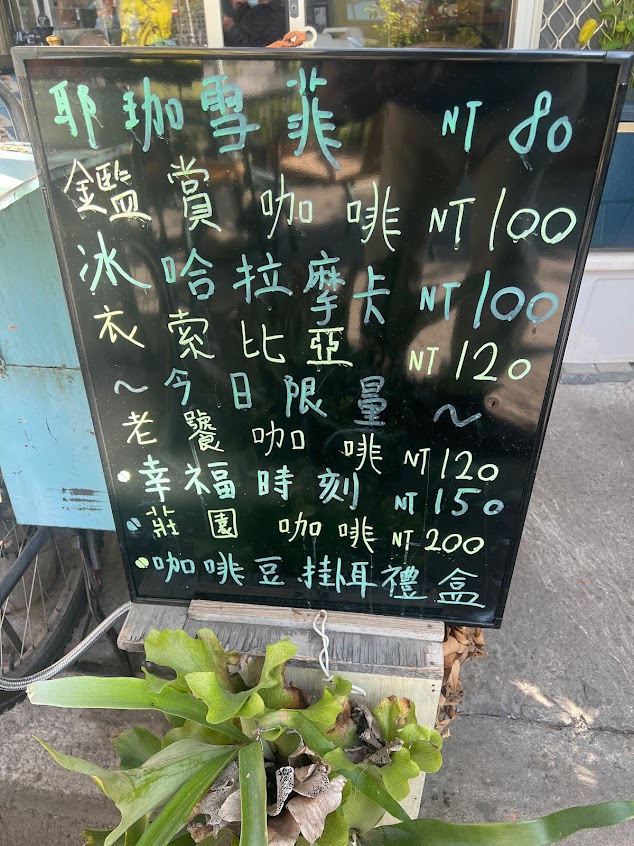 耶珈雪菲 NT 80
鑑賞咖啡 NT 100
冰哈拉摩卡 NT 100
衣索比亞 NT 120
~今日限量~
老饕咖啡 NT 120
•幸福時刻 NT 150
•莊園咖啡 NT 200
•咖啡豆.掛耳禮盒